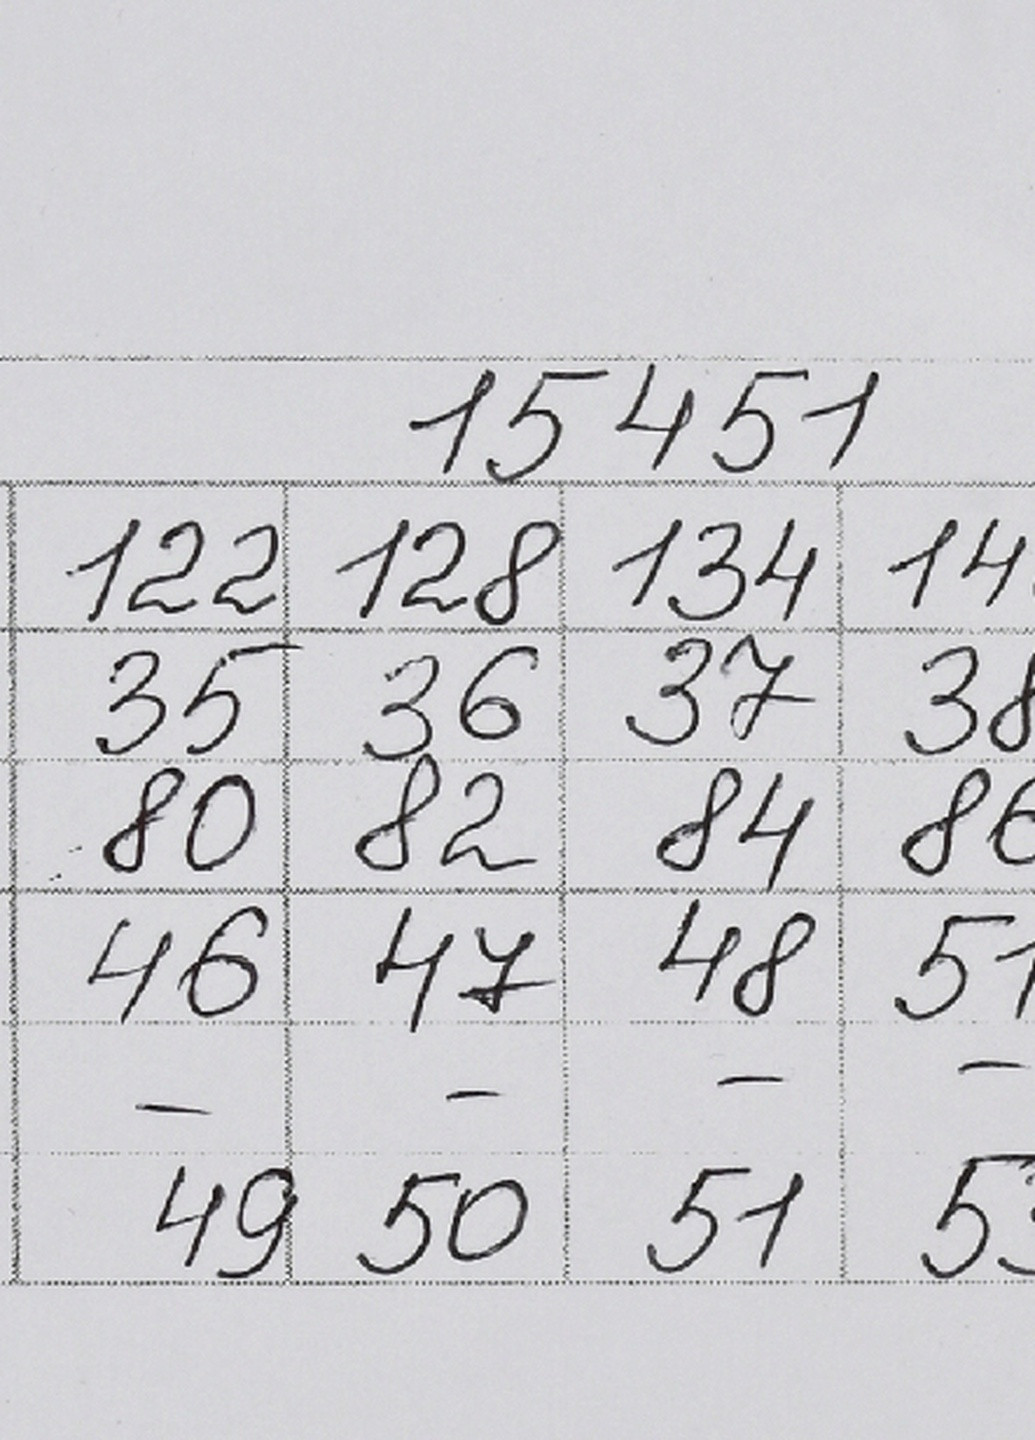 15451
122 128 134
35 36 37 38
80 82 84 86
46 47 48 51
– – – –
49 50 51 53